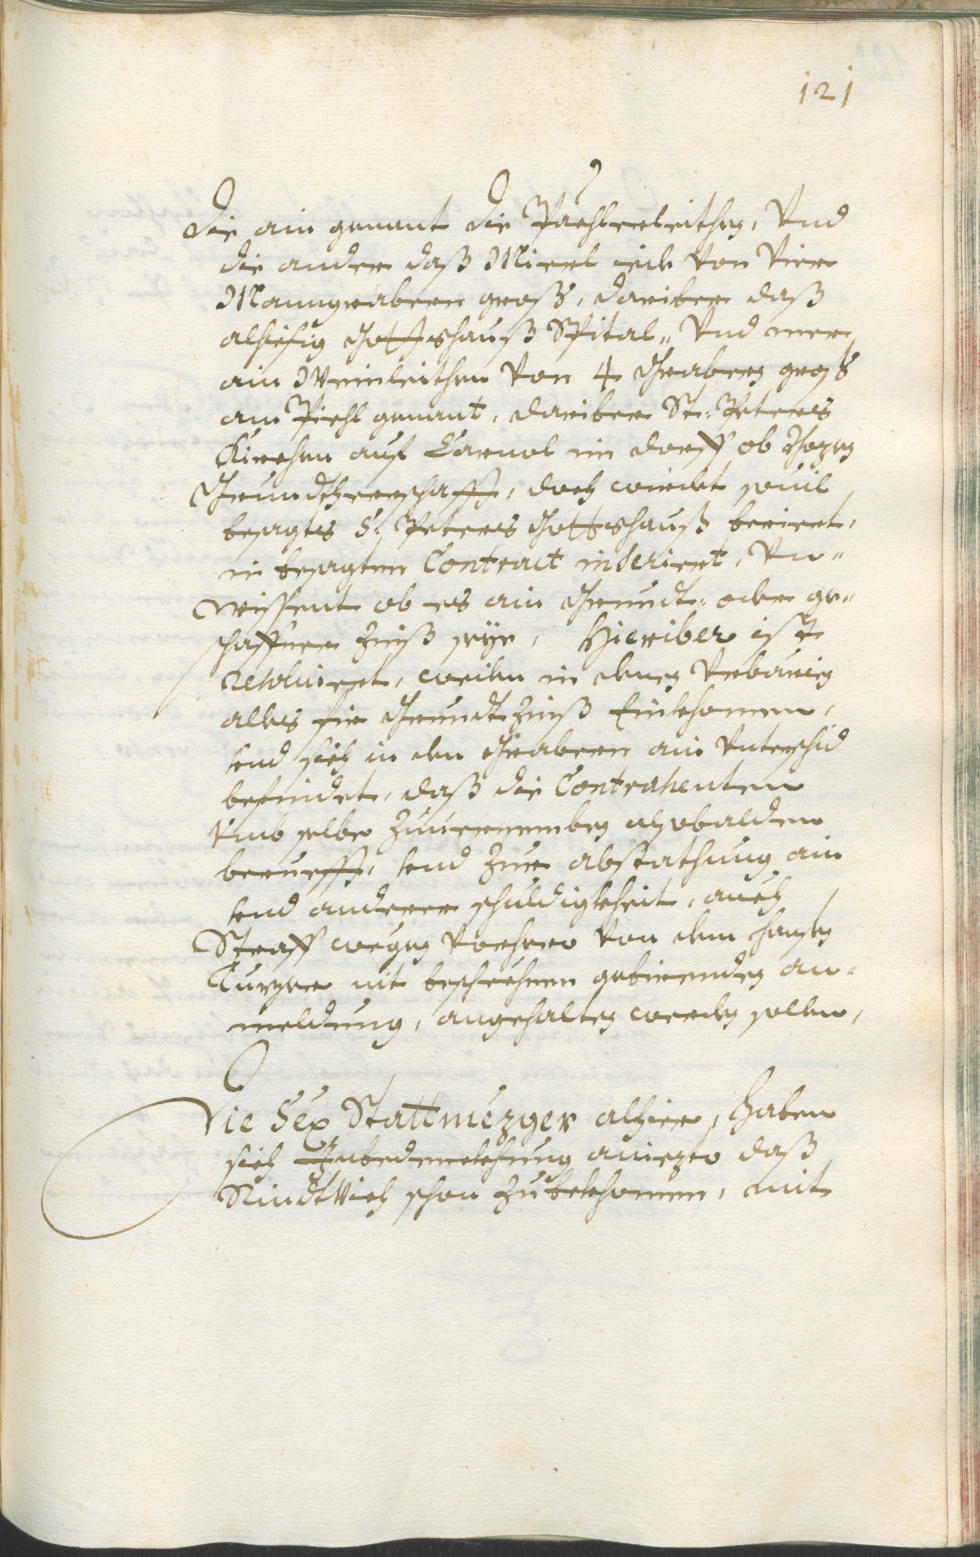 121
Die ain genant die Pachlerleithen, Vnd
die ander daß Mierl iede Von Vier
Manngrabern groß, dariber daß
alhiesig Gottshauß Spital, Vnd mer
ain Weinleithen Von 4 Grabern groß
am Piehl genant, dariber St: Peters
Kirchen auf Carnol im dorff ob Ihr
Grundtherrschafft, doch wirdet souil
besagtes S: Peters Gottshauß beriert,
in besagten Contract inseriert, Vn-
wissent ob es ain Grundt: oder ge-
schaffner Zinß seye, Hieriber ist
resoluiert, weilen in denen Vrbarien
alles fir Grundt Zinß Einkhomen,
und sich in den Grabern ain Vnterschid
befindet, daß die Contrahenten
Vmb selbe Zuuernemben alsobalden
beruefft, und Zur abstathung ain
und anderer schuldigkheit, auch
Straff wegen Vorhero Von dem
Curzer nit beschechnen gebirenden an-
meldung, angehalten werden sollen,
Die Sex Stattmezger alhier, haben
sich daß
Rindt Viech schon Zubekhomen, mit